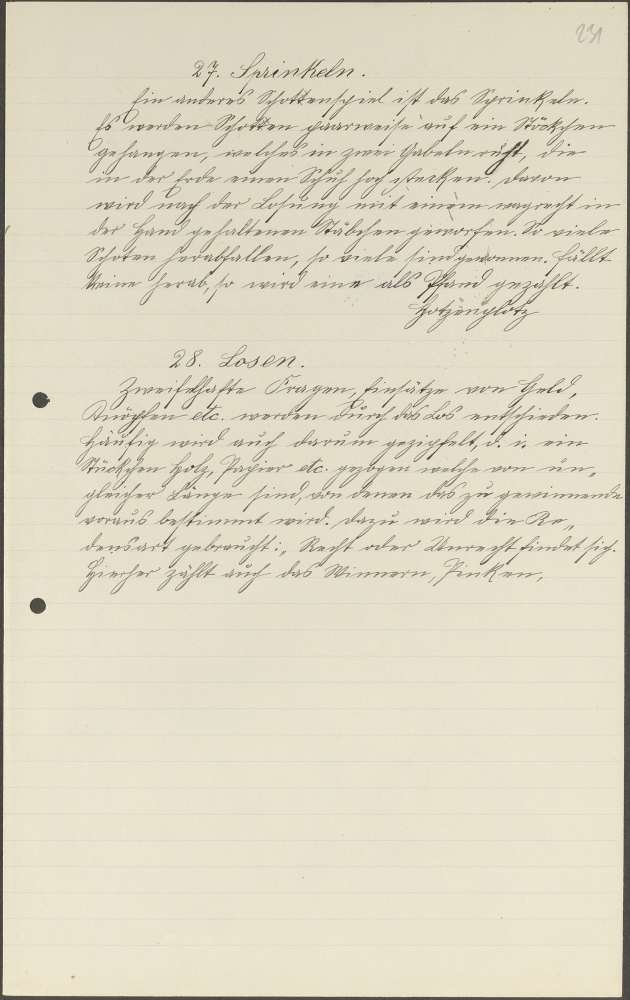 231
27. Sprinkeln.
Ein anderes Schottenspiel ist das Sprinkeln.
Es werden Schotten paarweise auf ein Stöckchen
gehangen, welches in zwei Gabeln ruht, die
in der Erde einen Schuh hoch stecken. Davon
wird nach der Losung mit einem wagrecht in
der Hand gehaltenen Stäbchen geworfen. So viele
Schoten herabfallen, so viele sind gewonnen. Fällt
keine herab, so wird eine als Pfand gezahlt.
Hotzenplotz
28. Losen.
Zweifelhafte Fragen, Einsätze von Geld,
Knöpfen etc. werden durch das Los entschieden.
Häufig wird auch darum gezipfelt, d. i. ein
Stückchen Holz, Papier etc. gezogen welche von un„
gleicher Länge sind, von denen das zu gewinnende
voraus bestimmt wird. Dazu wird die Re„
densart gebraucht: „Recht oder Unrecht findet sich.
Hierher zählt auch das Winnern, Pinken,